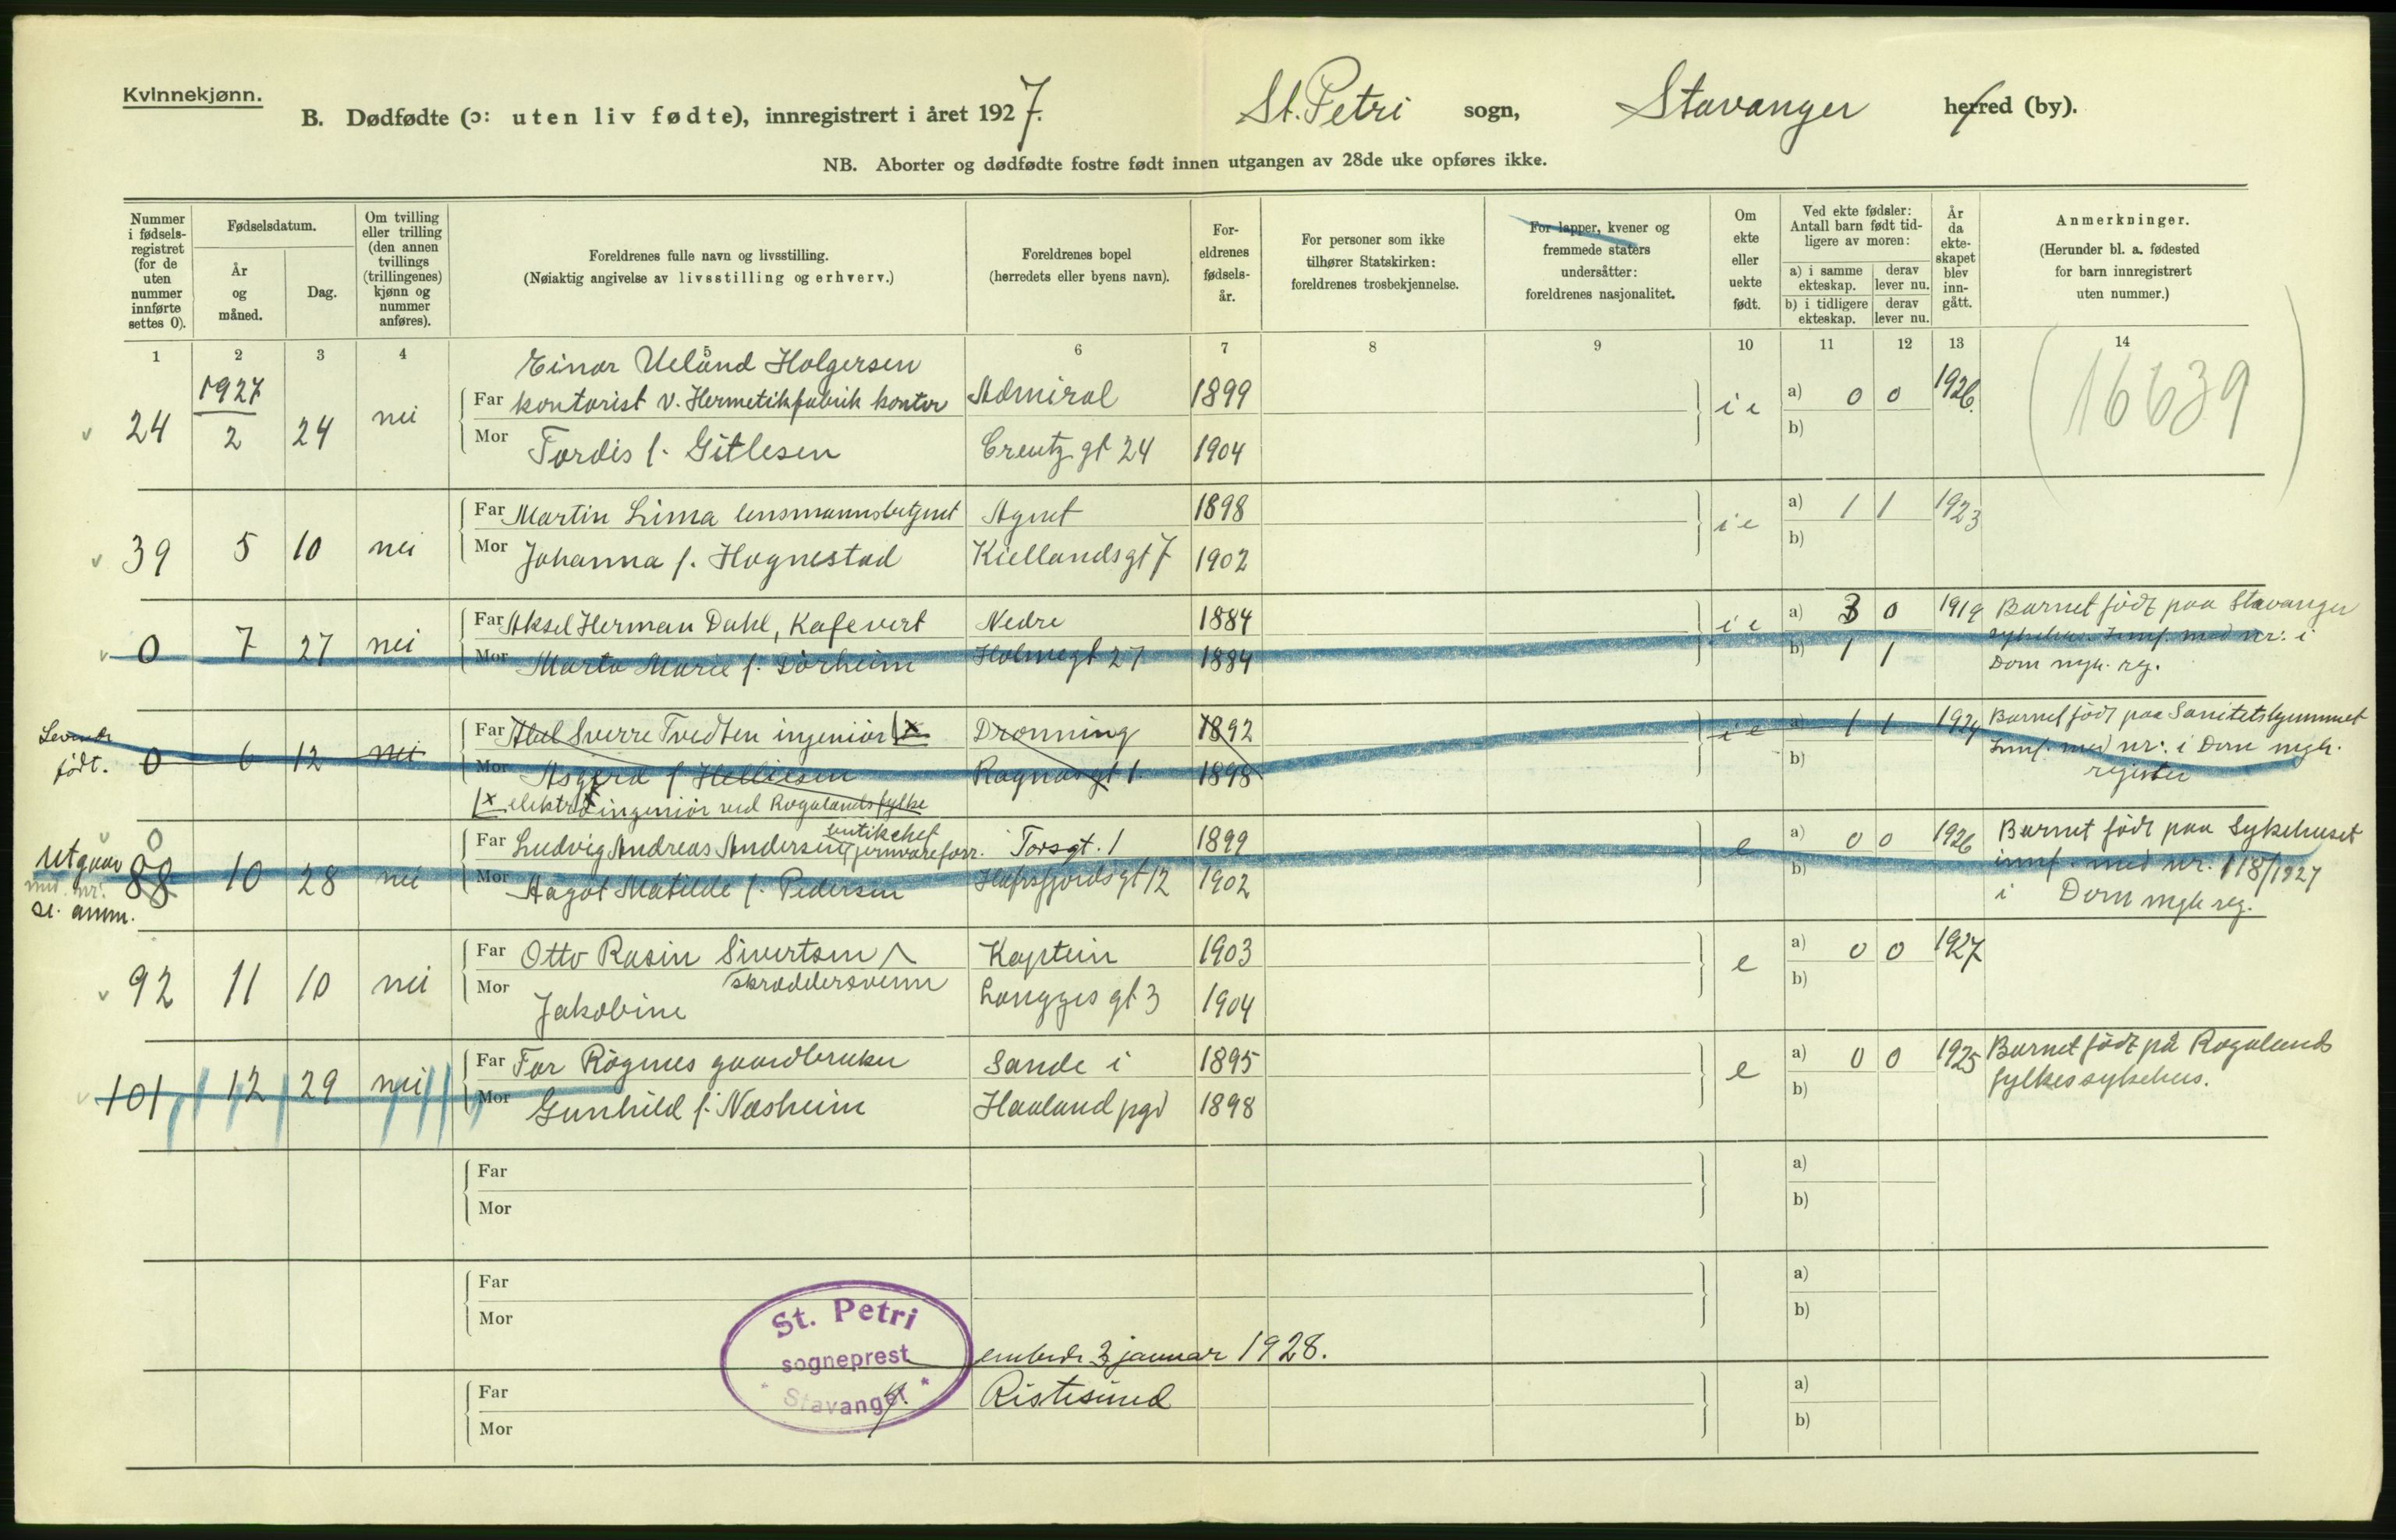 Kvinnekjønn.
B. Dødfødte (ɔ: uten liv fødte), innregistrert i året 1927. St. Petri sogn, Stavanger herred (by).
NB. Aborter og dødfødte fostre født innen utgangen av 28de uke opføres ikke.
Nummer i fødselsregistret (for de uten nummer innførte settes 0).
Fødselsdatum.
År og måned.
Dag.
Om tvilling eller trilling (den annen tvillings (trillingenes) kjønn og nummer anføres).
Foreldrenes fulle navn og livsstilling.
(Nøiaktig angivelse av livsstilling og erhverv.)
Foreldrenes bopel
(herredets eller byens navn).
Foreldrenes fødselsår.
For personer som ikke tilhører Statskirken: foreldrenes trosbekjennelse.
For lapper, kvener og fremmede staters undersåtter: foreldrenes nasjonalitet.
Om ekte eller uekte født.
Ved ekte fødsler: Antall barn født tidligere av moren:
a) i samme ekteskap. derav lever nu.
b) i tidligere ekteskap. derav lever nu.
År da ekteskapet blev inngått.
Anmerkninger.
(Herunder bl. a. fødested for barn innregistrert uten nummer.)
1 2 3 4 5 6 7 8 9 10 11 12 13 14
Einar Ueland Holgersen
1927
24 2 24 nei Far kontorist v. Hermetikfabrik kontor Admiral 1899 i e a) 0 0 1926. (16639)
Mor Tordis f. Gitlesen Creutz gt 24 1904 b)
39 5 10 nei Far Martin Lima lensmannsbetjent Agnet 1898 i e a) 1 1 1923
Mor Johanna f. Hognestad Kiellandsgt 7 1902 b)
0 7 27 nei Far Aksel Herman Dahl, Kafevert Nedre 1884 i e a) 3 0 1919 Barnet født paa Stavanger
Mor Marta Marie f. Dørheim Holmegt 27 1884 b) 1 1 sykehus. Innf. med nr. i
Dom mgh. reg.
Levende født.
0 6 12 nei Far Abel Sverre Tvedten ingeniør (x Dronning 1892 i e a) 1 1 1924 Barnet født paa Sanitetshjemmet
Mor Asgerd f Helliesen Ragnasgt 1. 1898 b) Innf. med nr. i Dom mgh.
register
(x elektroingeniør ved Rogalands fylke
0
Utgaar
se. anm.
88 10 28 nei Far Ludvig Andreas Andersen butikchef jernvareforr. Torsgt. 1 1899 e a) 0 0 1926 Barnet født paa Sykehuset
Mor Aagot Matilde f. Pedersen Hafrsfjordsgt 12 1902 b) innf. med nr. 118/1927
i Dom mgh reg.
92 11 10 nei Far Otto Rasin Sivertsen Kaptein 1903 e a) 0 0 1927
skreddersvenn
Mor Jakobine Langges gt 3 1904 b)
101 12 29 nei Far Tor Rognes gaardbruker Sande i 1895 e a) 0 0 1925 Barnet født på Rogalands
Mor Gunhild f. Næsheim Haaland pgd 1898 b) fylkessykehus.
Far a)
Mor b)
Far a)
Mor b)
St. Petri
sogneprest embede 3 januar 1928.
Stavanger
Far Ristesund a)
Mor b)